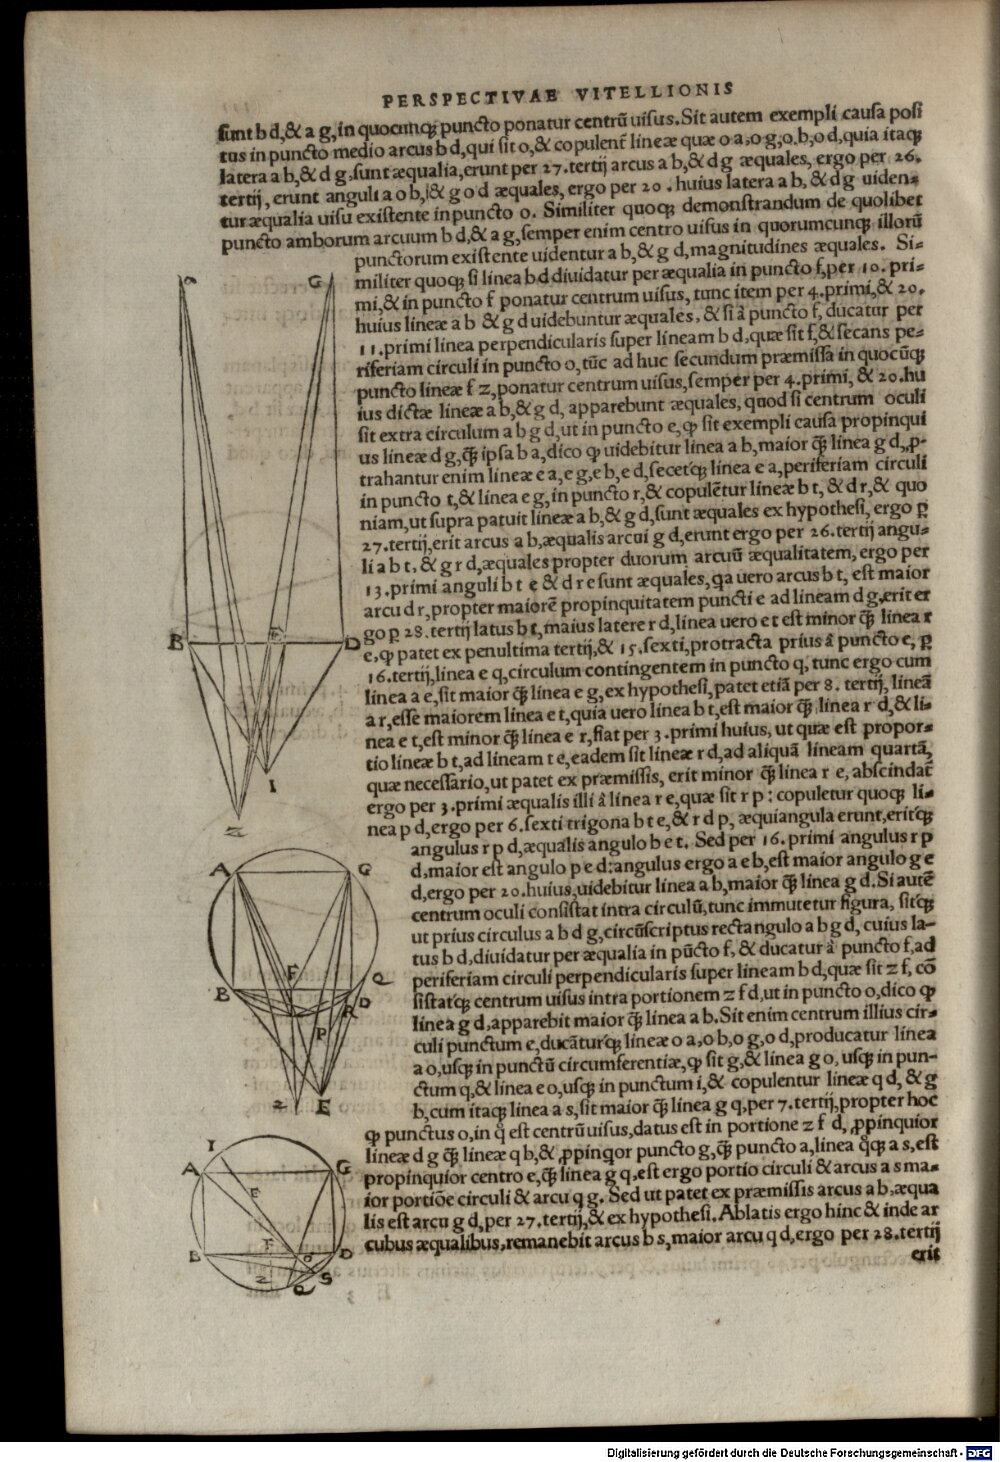 PERSPECTIVAE VITELLIONIS
sunt b d,& a g, in quocunq; puncto ponatur centrū uisus. Sit autem exempli causa posi
tus in puncto medio arcus b d, qui sit o, & copulent̃ lineæ quæ o a, o g, o b, o d, quia itaq;
latera a b, & d g, sunt æqualia, erunt per 27. tertij arcus a b, & d g æquales, ergo per 26.
tertij, erunt anguli a o b, & g o d æquales, ergo per 20. huius latera a b, & d g uiden=
tur æqualia uisu existente in puncto o. Similiter quoq; demonstrandum de quolibet
puncto amborum arcuum b d, & a g, semper enim centro uisus in quorumcunq; illorū
punctorum existente uidentur a b, & g d, magnitudines æquales. Si=
militer quoq; si linea b d diuidatur per æqualia in puncto f, per 10. pri=
mi, & in puncto f ponatur centrum uisus, tunc item per 4. primi, & 20.
huius lineæ a b & g d uidebuntur æquales, & si à puncto f, ducatur per
11. primi linea perpendicularis super lineam b d, quæ sit f, & secans pe=
riferiam circuli in puncto o, tūc ad huc secundum præmissa in quocūq;
puncto lineæ f z, ponatur centrum uisus, semper per 4. primi, & 20. hu
ius dictæ lineæ a b, & g d, apparebunt æquales, quod si centrum oculi
sit extra circulum a b g d, ut in puncto e, ꝙ sit exempli causa propinqui
us lineæ d g, q̃ ipsa b a, dico ꝙ uidebitur linea a b, maior q̃ linea g d, ꝓ-
trahantur enim lineæ e a, e g, e b, e d, secetq; linea e a, periferiam circuli
in puncto t, & linea e g, in puncto r, & copulētur lineæ b t, & d r, & quo
niam, ut supra patuit lineæ a b, & g d, sunt æquales ex hypothesi, ergo ꝑ
27. tertij, erit arcus a b, æqualis arcui g d, erunt ergo per 26. tertij angu=
li a b t, & g r d, æquales propter duorum arcuū æqualitatem, ergo per
13. primi anguli b t e & d r e sunt æquales, q̃a uero arcus b t, est maior
arcu d r, propter maiorē propinquitatem puncti e ad lineam d g, erit er
go ꝑ 28. tertij latus b t, maius latere r d, linea uero e t est minor q̃ linea r
e, ꝙ patet ex penultima tertij, & 15. sexti, protracta prius à puncto e, ꝑ
16. tertij, linea e q, circulum contingentem in puncto q, tunc ergo cum
linea a e, sit maior q̃ linea e g, ex hypothesi, patet etiā per 8. tertij, lineā
a r, esse maiorem linea e t, quia uero linea b t, est maior q̃ linea r d, & li=
nea e t, est minor q̃ linea e r, fiat per 3. primi huius, ut quæ est propor=
tio lineæ b t, ad lineam t e, eadem sit lineæ r d, ad aliquā lineam quartā,
quæ necessario, ut patet ex præmissis, erit minor q̃ linea r e, abscindat̃
ergo per 3. primi æqualis illi à linea r e, quæ sit r p: copuletur quoq; li=
nea p d, ergo per 6. sexti trigona b t e, & r d p, æquiangula erunt, eritq;
angulus r p d, æqualis angulo b e t. Sed per 16. primi angulus r p
d, maior est angulo p e d: angulus ergo a e b, est maior angulo g e
d, ergo per 20. huius, uidebitur linea a b, maior q̃ linea g d. Si autē
centrum oculi consistat intra circulū, tunc immutetur figura, sitq;
ut prius circulus a b d g, circūscriptus rectangulo a b g d, cuius la-
tus b d, diuidatur per æqualia in pūcto f, & ducatur à puncto f, ad
periferiam circuli perpendicularis super lineam b d, quæ sit z f, cō
sistatq; centrum uisus intra portionem z f d, ut in puncto o, dico ꝙ
linea g d, apparebit maior q̃ linea a b. Sit enim centrum illius cir=
culi punctum e, ducāturq; lineæ o a, o b, o g, o d, producatur linea
a o, usq; in punctū circumferentiæ, ꝙ sit g, & linea g o, usq; in pun-
ctum q, & linea e o, usq; in punctum i, & copulentur lineæ q d, & g
b, cum itaq; linea a s, sit maior q̃ linea g q, per 7. tertij, propter hoc
ꝙ punctus o, in q̊ est centrū uisus, datus est in portione z f d, ꝓpinquior
lineæ d g q̃ lineæ q b, & ꝓpinq̊or puncto g, q̃ puncto a, linea q̊q; a s, est
propinquior centro e, q̃ linea g q, est ergo portio circuli & arcus a s ma=
ior portiōe circuli & arcu q g. Sed ut patet ex præmissis arcus a b, æqua
lis est arcu g d, per 27. tertij, & ex hypothesi. Ablatis ergo hinc & inde ar
cubus æqualibus, remanebit arcus b s, maior arcu q d, ergo per 28. tertij
erit
A G
B F D
I
Z
A G
B F Q
D
R
P
Z E
I
A G
E
F
B O D
Z Q S
Digitalisierung gefördert durch die Deutsche Forschungsgemeinschaft - DFG